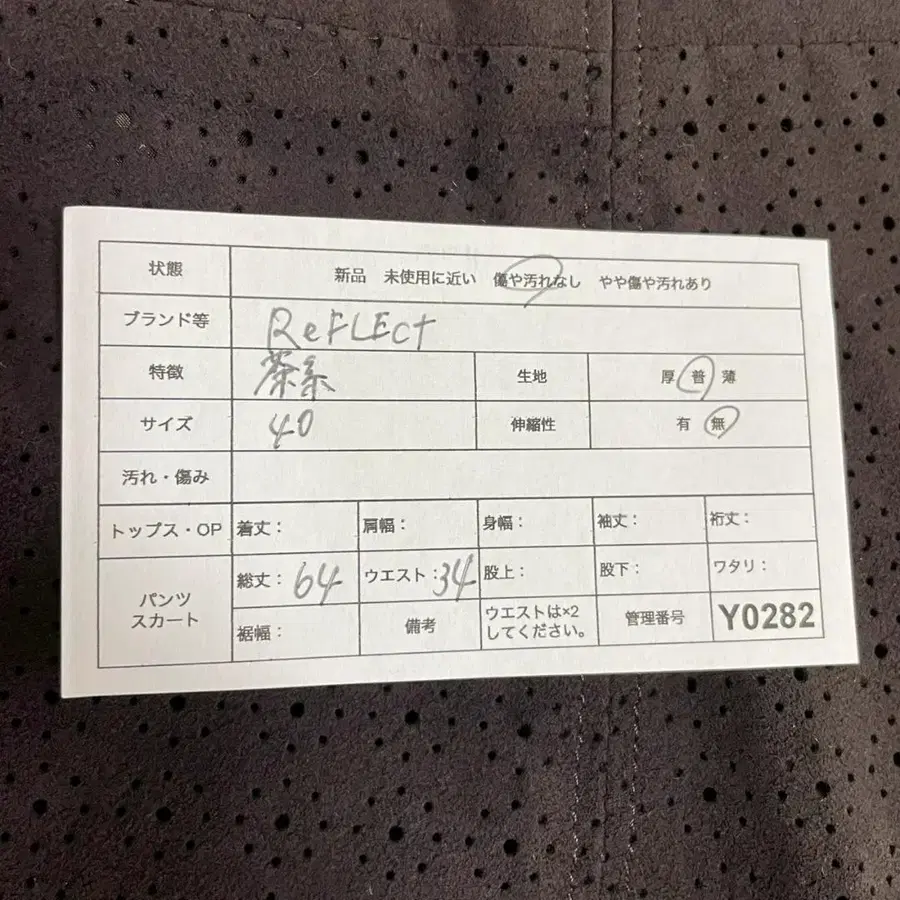 状態 新品 未使用に近い 傷や汚れなし やや傷や汚れあり
ブランド等 ReFLEct
特徴 茶系 生地 厚 普 薄
サイズ 40 伸縮性 有 無
汚れ・傷み
トップス・OP 着丈： 肩幅： 身幅： 袖丈： 裄丈：
パンツ
スカート
総丈：64 ウエスト：34 股上： 股下： ワタリ：
裾幅： 備考 ウエストは×2
してください。
管理番号 Y0282